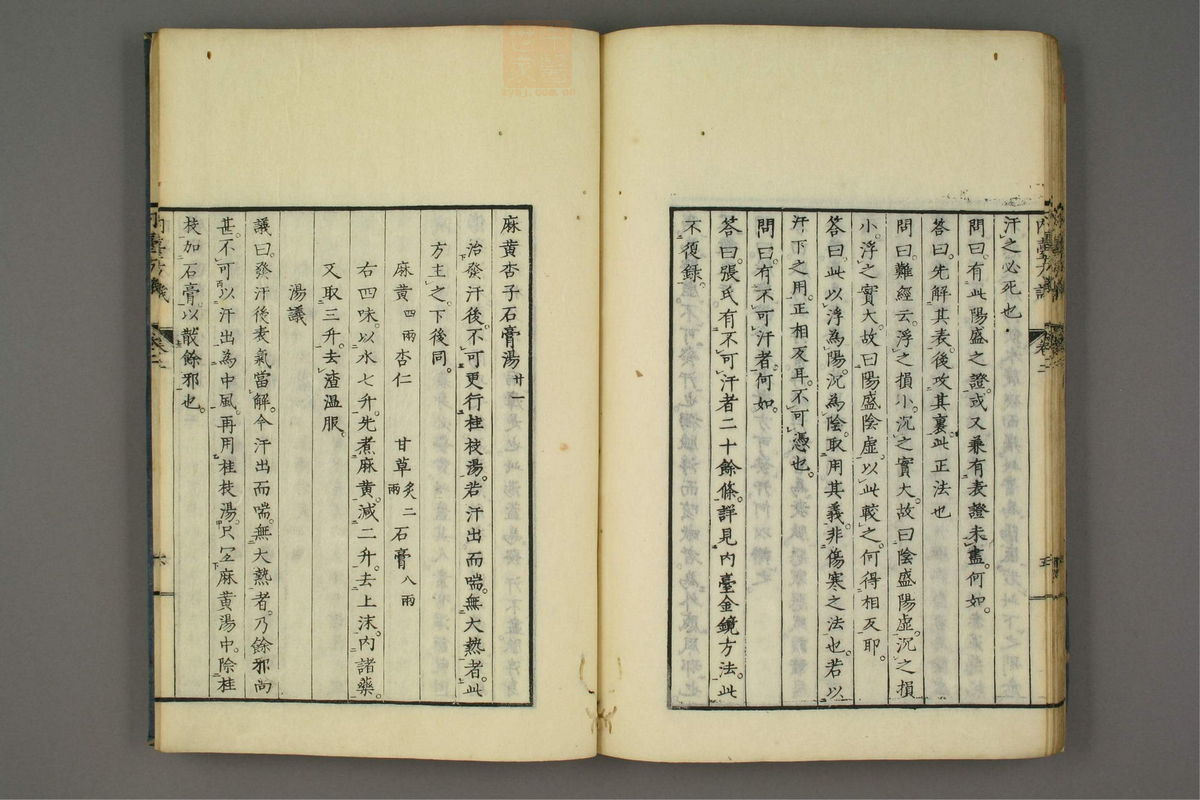 汗之必死也
問曰有此陽盛之證或又兼有表證未盡何如
答曰先解其表後攻其裏此正法也
問曰難經云浮之損小沉之實大故曰陰盛陽虛沉之損
小浮之實大故曰陽盛陰虛以此較之何得相反耶
答曰此以浮為陽沉為陰取用其義非傷寒之法也若以
汗下之用正相反耳不可憑也
問曰有不可汗者何如
答曰張氏有不可汗者二十餘條詳見內臺金鏡方法此
不復錄
麻黃杏子石膏湯 廿一
治發汗後不可更行桂枝湯若汗出而喘無大熱者此
方主之下後同
麻黃四兩 杏仁 甘草炙二兩 石膏八兩
右四味以水七升先煮麻黃減二升去上沫內諸藥
又取三升去渣溫服
湯議
議曰發汗後表氣當解今汗出而喘無大熱者乃餘邪尚
甚不可以汗出為中風再用桂枝湯只宜麻黃湯中除桂
枝加石膏以散餘邪也